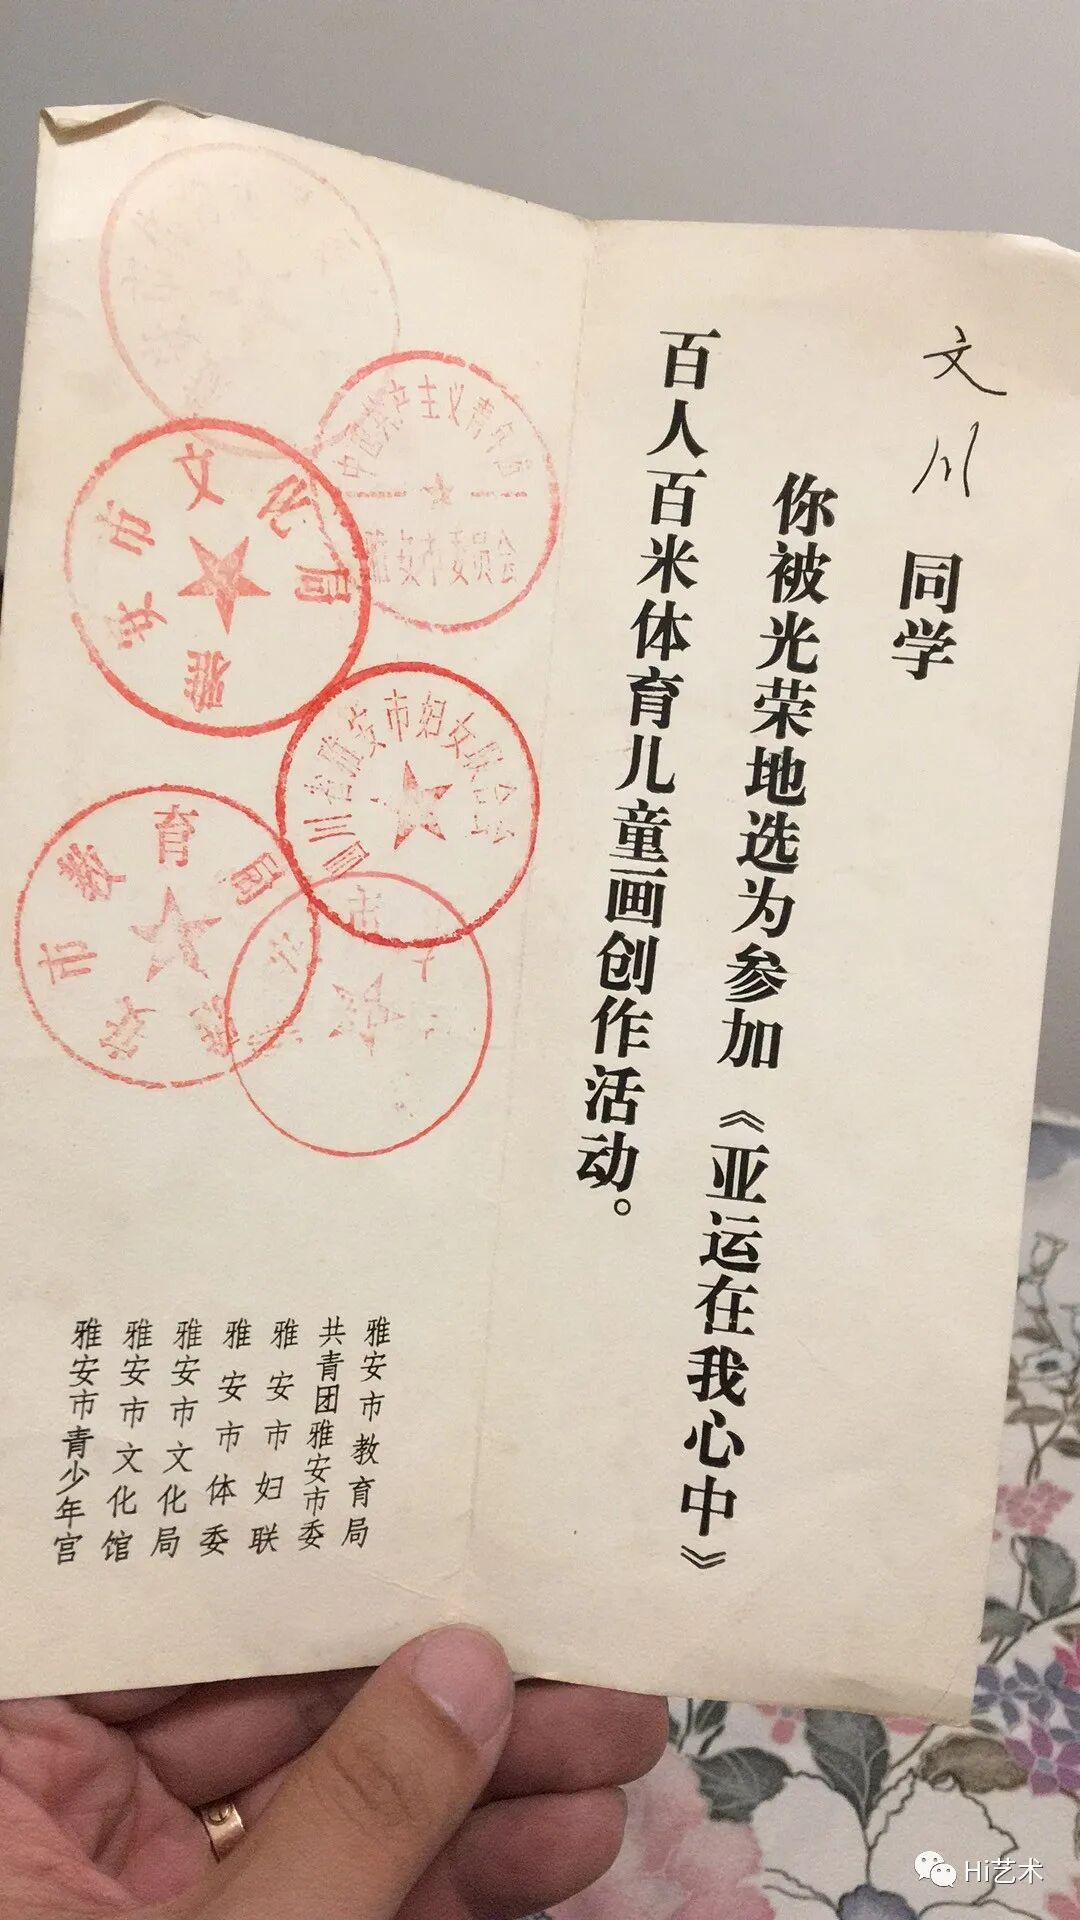 文川 同学
你被光荣地选为参加《亚运在我心中》
百人百米体育儿童画创作活动。
雅安市教育局
共青团雅安市委
雅安市妇联
雅安市体委
雅安市文化局
雅安市文化馆
雅安市青少年宫
中国共产主义青年团
雅安市委员会
雅安市文化局
四川省雅安市妇女联合会
雅安市教育局
Hi艺术